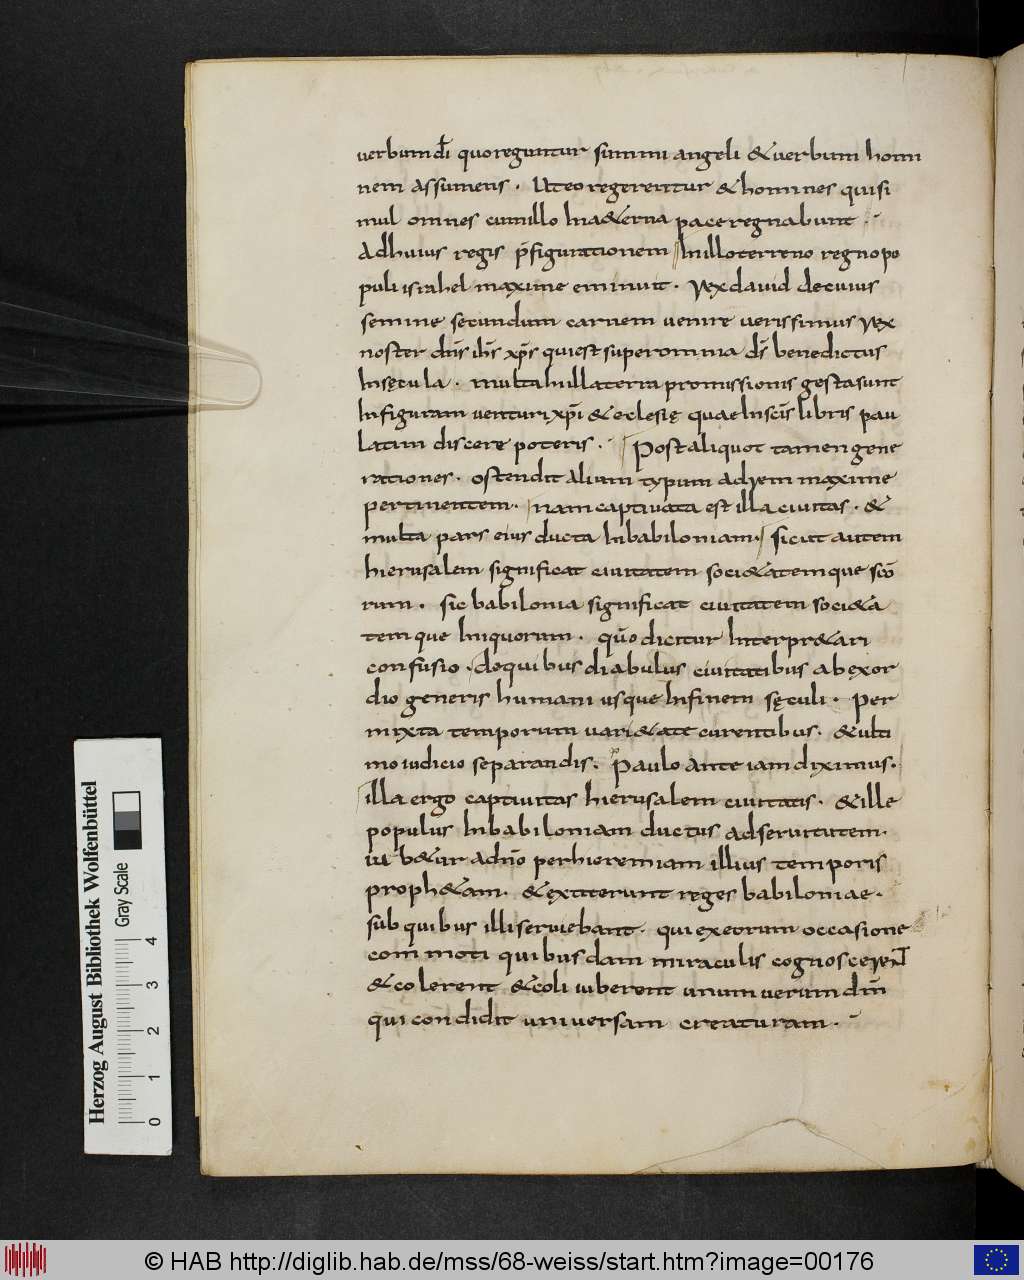 uerbum dī quo reguntur summi angeli & uerbum homi
nem assumens . Ut eo regerentur & homines qui si
mul omnes cum illo In a&erna pace regnabunt . -
Ad huius regis p̄figurationem In illo terreno regno po
puli israhel maxime eminuit . Rex dauid de cuius
semine secundum carnem uenire uerissimus Rex
noster dn̄s ih̄s xp̄s qui est super omnia ds̄ benedictus
In sęcula . multa In illa terra promissionis gesta sunt
In figuram uenturi xp̄i & eclesię quae In scīs libris pau
latim discere poteris . - Post aliquot tamen gene
rationes . ostendit alium typum ad rem maxime
pertinentem . nam captiuata est illa ciuitas . &
multa pars eius ducta In babiloniam . sicut autem
hierusalem significat ciuitatem soci&atemque scō
rum . sic babilonia significat ciuitatem soci&a
temque Iniquorum . quo dicitur Interpr&ari
confusio . de quibus diabulus ciuitatibus ab exor
dio generis humani usque In finem sęculi . Per
mixta temporum uari&ate curentibus . & ulti
mo iudicio separandis . Paulo ante iam diximus .
illa ergo captiuitas hierusalem ciuitatis . & ille
populus In babiloniam ductus ad seruitutem .
iub&ur a dn̄o per hieremiam illius temporis
proph&am . & extiterunt reges babiloniae .
sub quibus illi seruiebant . qui ex eorum occasione
commoti quibusdam miraculis cognoscerent
& colerent & coli iuberent unum uerum dn̄m
qui condidit uniuersam creaturam . -
Herzog August Bibliothek Wolfenbüttel
Gray Scale
0 1 2 3 4
© HAB http://diglib.hab.de/mss/68-weiss/start.htm?image=00176